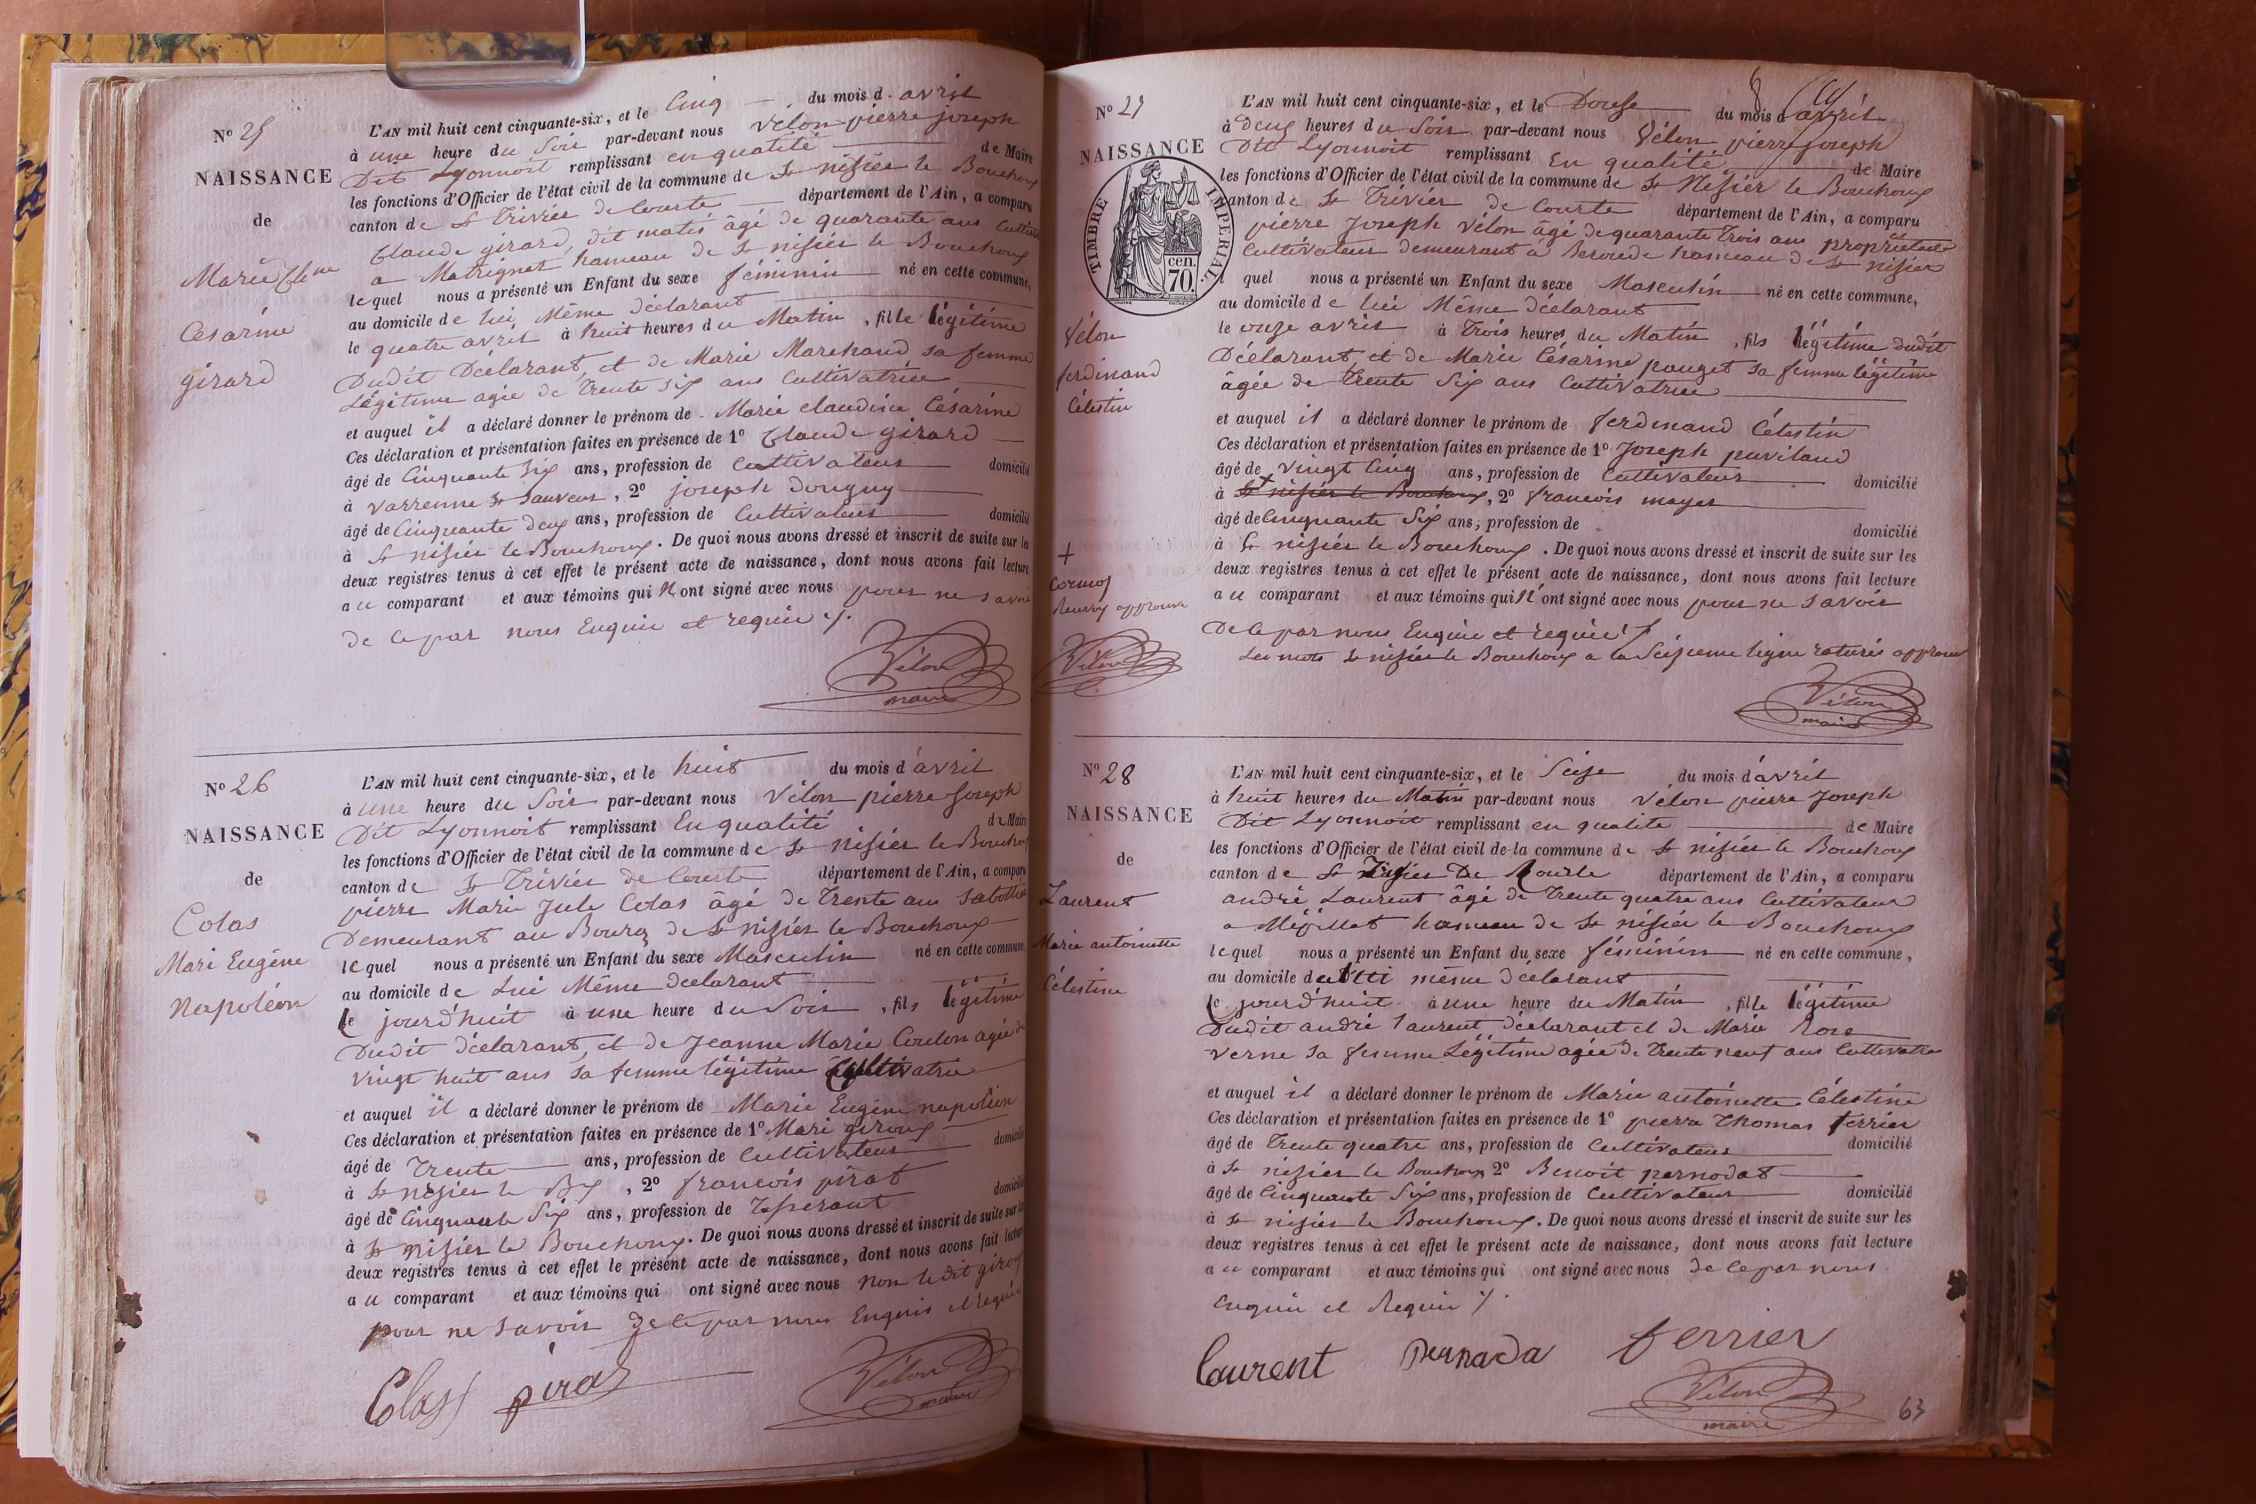 N° 25
NAISSANCE
de
Marie Cl.ne
Césarine
girard
L'AN mil huit cent cinquante-six, et le Cinq du mois d. avril
à une heure du Soir par-devant nous Vélon pierre joseph
Dit Lyonnoit remplissant en qualité de Maire
les fonctions d'Officier de l'état civil de la commune de St nisier le Bouchoux
canton de St Trivier de Courte département de l'Ain, a comparu
Claude girard, dit matis âgé de quarante ans Cultiv
a Matrignat hameau de St nisier le Bouchoux
lequel nous a présenté un Enfant du sexe féminin né en cette commune,
au domicile de lui Même déclarant
le quatre avril à huit heures du Matin, fille légitime
Dudit Déclarant, et de Marie Marchand sa femme
Légitime agée de Trente six ans Cultivatrice
et auquel il a déclaré donner le prénom de Marie claudine Césarine
Ces déclaration et présentation faites en présence de 1° Claude girard
âgé de Cinquante Six ans, profession de Cultivateur domicilié
à Varrenne St Sauveur, 2° joseph Donguy
âgé de Cinquante deux ans, profession de Cultivateur domicilié
à St nisier le Bouchoux. De quoi nous avons dressé et inscrit de suite sur les
deux registres tenus à cet effet le présent acte de naissance, dont nous avons fait lecture
au comparant et aux témoins qui N'ont signé avec nous pour ne savoir
de ce par nous Enquie et requie ./.
Vélon
maire
N° 26
NAISSANCE
de
Colas
Mari Eugéne
Napoléon
L'AN mil huit cent cinquante-six, et le huit du mois d'avril
à une heure du Soir par-devant nous Vélon pierre Joseph
Dit Lyonnoit remplissant En qualité de Maire
les fonctions d'Officier de l'état civil de la commune de St nisier le Boucho
canton de St Trivier de Courte département de l'Ain, a comparu
pierre Marie Jule Colas âgé de Trente ans Sabottier
Demeurant au Bourg de St nisier le Bouchoux
lequel nous a présenté un Enfant du sexe Masculin né en cette commune
au domicile de Lui Même declarant
le jourd'huit à une heure du Soir, fils légitime
Dudit déclarant, et de Jeanne Marie Coulon agée de
vingt huit ans sa femme légitime Cultivatrice
et auquel il a déclaré donner le prénom de Marie Eugéne napoléon
Ces déclaration et présentation faites en présence de 1° Mari giroux
âgé de Trente ans, profession de Cultivateur domicilié
à St nisier le Bx, 2° francois pirat
âgé de Cinquante Six ans, profession de Tisserant domicilié
à St nisier le Bouchoux. De quoi nous avons dressé et inscrit de suite sur les
deux registres tenus à cet effet le présent acte de naissance, dont nous avons fait lecture
au comparant et aux témoins qui ont signé avec nous non ledit giroux
pour ne savoir de ce par nous Enquis et requie
Colas pirat
Vélon
maire
N° 27
NAISSANCE
TIMBRE IMPERIAL
cen.
70.
Vélon
ferdinand
Célestin
+
Cormoz
Renvoy approuvé
Vélon
L'AN mil huit cent cinquante-six, et le Douze du mois d'avril
à deux heures du Soir par-devant nous Vélon pierre Joseph
Dit Lyonnoit remplissant En qualité de Maire
les fonctions d'Officier de l'état civil de la commune de St Nisier le Bouchoux
canton de St Trivier de Courte département de l'Ain, a comparu
pierre Joseph Vélon âgé de quarante Trois ans propriétaire
Cultivateur demeurant à Beroude hameau de St nisier
lequel nous a présenté un Enfant du sexe Masculin né en cette commune,
au domicile de lui Même déclarant
le onze avril à Trois heures du Matin, fils légitime dudit
Déclarant, et de Marie Césarine pouget sa femme légitime
âgée de Trente Six ans Cultivatrice
et auquel il a déclaré donner le prénom de ferdinand Célestin
Ces déclaration et présentation faites en présence de 1° Joseph paviland
âgé de vingt Cinq ans, profession de Cultivateur domicilié
à St nisier le Bouchoux, 2° francois mayer
âgé de Cinquante Six ans, profession de domicilié
à St nisier le Bouchoux. De quoi nous avons dressé et inscrit de suite sur les
deux registres tenus à cet effet le présent acte de naissance, dont nous avons fait lecture
au comparant et aux témoins qui N'ont signé avec nous pour ne savoir
De ce par nous Enquie et requie ./.
Les mots St nisier le Bouchoux a la Seizieme ligne raturés approuvé
Vélon
maire
N° 28
NAISSANCE
de
Laurent
Marie antoinette
Célestine
L'AN mil huit cent cinquante-six, et le Seize du mois d'avril
à huit heures du Matin par-devant nous Vélon pierre Joseph
Dit Lyonnoit remplissant en qualite de Maire
les fonctions d'Officier de l'état civil de la commune de St nisier le Bouchoux
canton de St Trivier De Courte département de l'Ain, a comparu
andré Laurent âgé de Trente quatre ans Cultivateur
a Mézillat hameau de St nisier le Bouchoux
lequel nous a présenté un Enfant du sexe féminin né en cette commune,
au domicile de lui même déclarant
le jourd'huit à une heure du Matin, fille légitime
Dudit andré laurent déclarant et de Marie Rose
verne sa femme Légitime agée de Trente neuf ans Cultivatri
et auquel il a déclaré donner le prénom de Marie antoinette Célestine
Ces déclaration et présentation faites en présence de 1° pierre Thomas ferrier
âgé de Trente quatre ans, profession de Cultivateur domicilié
à St nisier le Bouchoux 2° Benoit pernodat
âgé de Cinquante Six ans, profession de Cultivateur domicilié
à St nisier le Bouchoux. De quoi nous avons dressé et inscrit de suite sur les
deux registres tenus à cet effet le présent acte de naissance, dont nous avons fait lecture
au comparant et aux témoins qui ont signé avec nous de ce par nous
enquie et Requie ./.
Laurent pernada ferrier
Vélon
maire
63